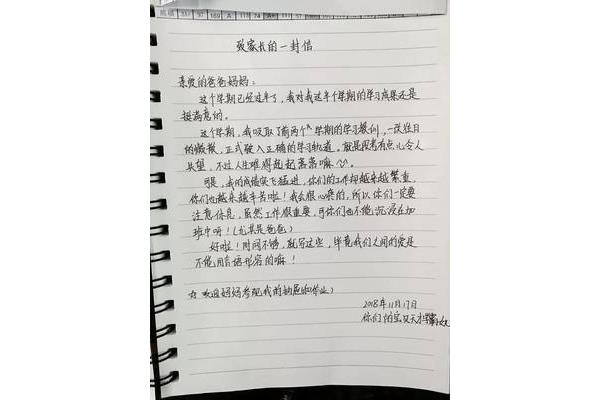 致家长的一封信
亲爱的爸爸妈妈:
这个学期已经过半了,我对我这半个学期的学习成果还是
挺满意的。
这个学期,我吸取了前两个学期的学习教训,一改往日
的懒散,正式驶入正确的学习轨道。就是段考有点儿令人
失望,不过人生难得起起落落嘛~。
可是,我的成绩突飞猛进,你们的工作却越来越繁重,
你们也越来越辛苦啦!我会很心疼的,所以你们一定要
注意休息,虽然工作很重要,可你们也不能沉浸在加
班中呀!(尤其是爸爸)
好啦!时间不够,就写这些,毕竟我们之间的爱是
不能用言语形容的嘛!
☆欢迎妈妈参观我的抽屉和作业)
2018年11月17日
你们的宝贝天才